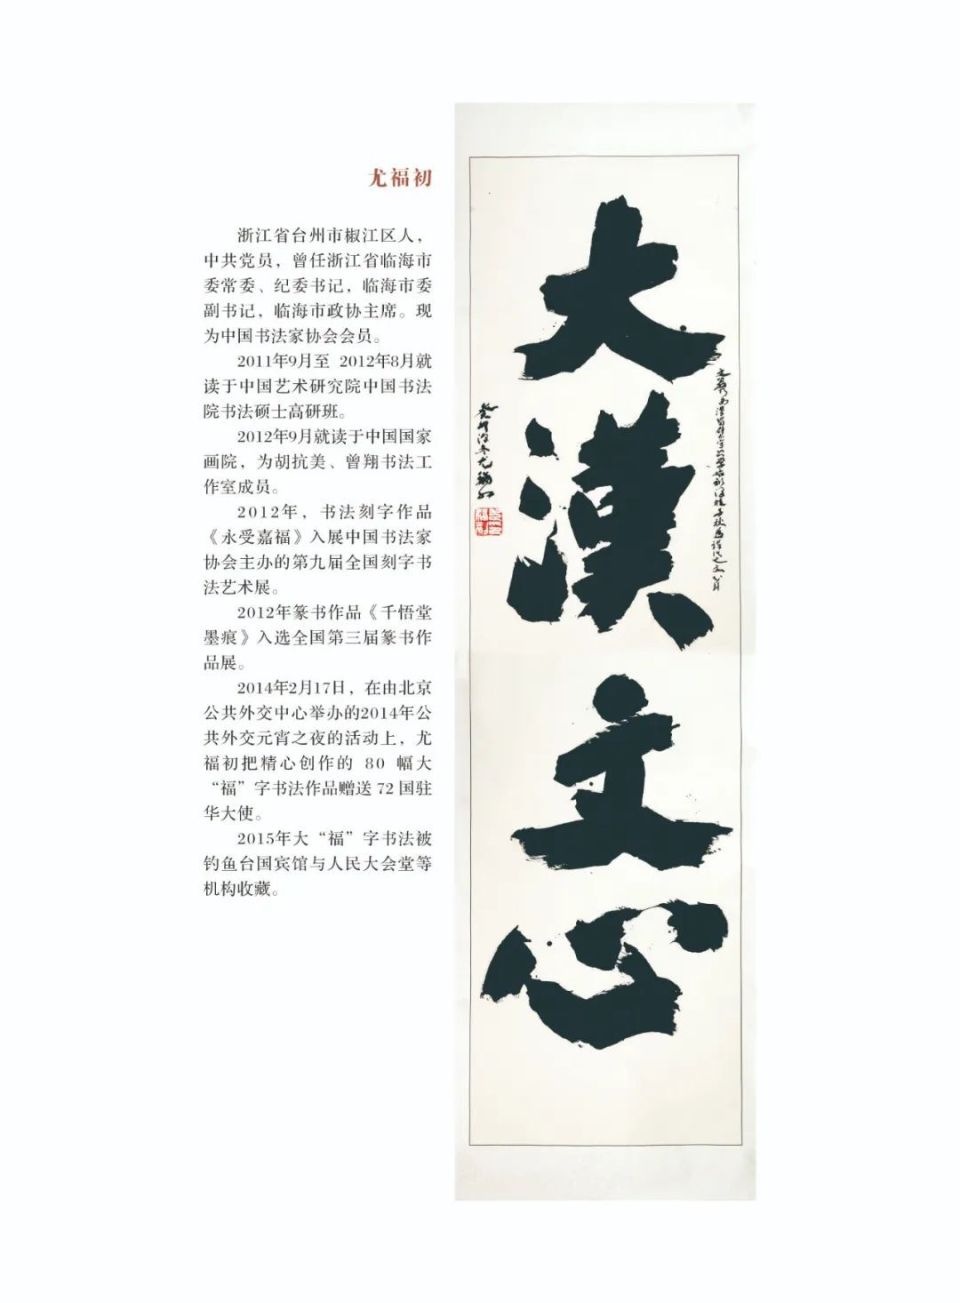 尤福初
浙江省台州市椒江区人，
中共党员，曾任浙江省临海市
委常委、纪委书记，临海市委
副书记，临海市政协主席。现
为中国书法家协会会员。
2011年9月至 2012年8月就
读于中国艺术研究院中国书法
院书法硕士高研班。
2012年9月就读于中国国家
画院，为胡抗美、曾翔书法工
作室成员。
2012年，书法刻字作品
《永受嘉福》入展中国书法家
协会主办的第九届全国刻字书
法艺术展。
2012年篆书作品《千悟堂
墨痕》入选全国第三届篆书作
品展。
2014年2月17日，在由北京
公共外交中心举办的2014年公
共外交元宵之夜的活动上，尤
福初把精心创作的 80 幅大
“福”字书法作品赠送 72 国驻
华大使。
2015年大“福”字书法被
钓鱼台国宾馆与人民大会堂等
机构收藏。
大漢文心